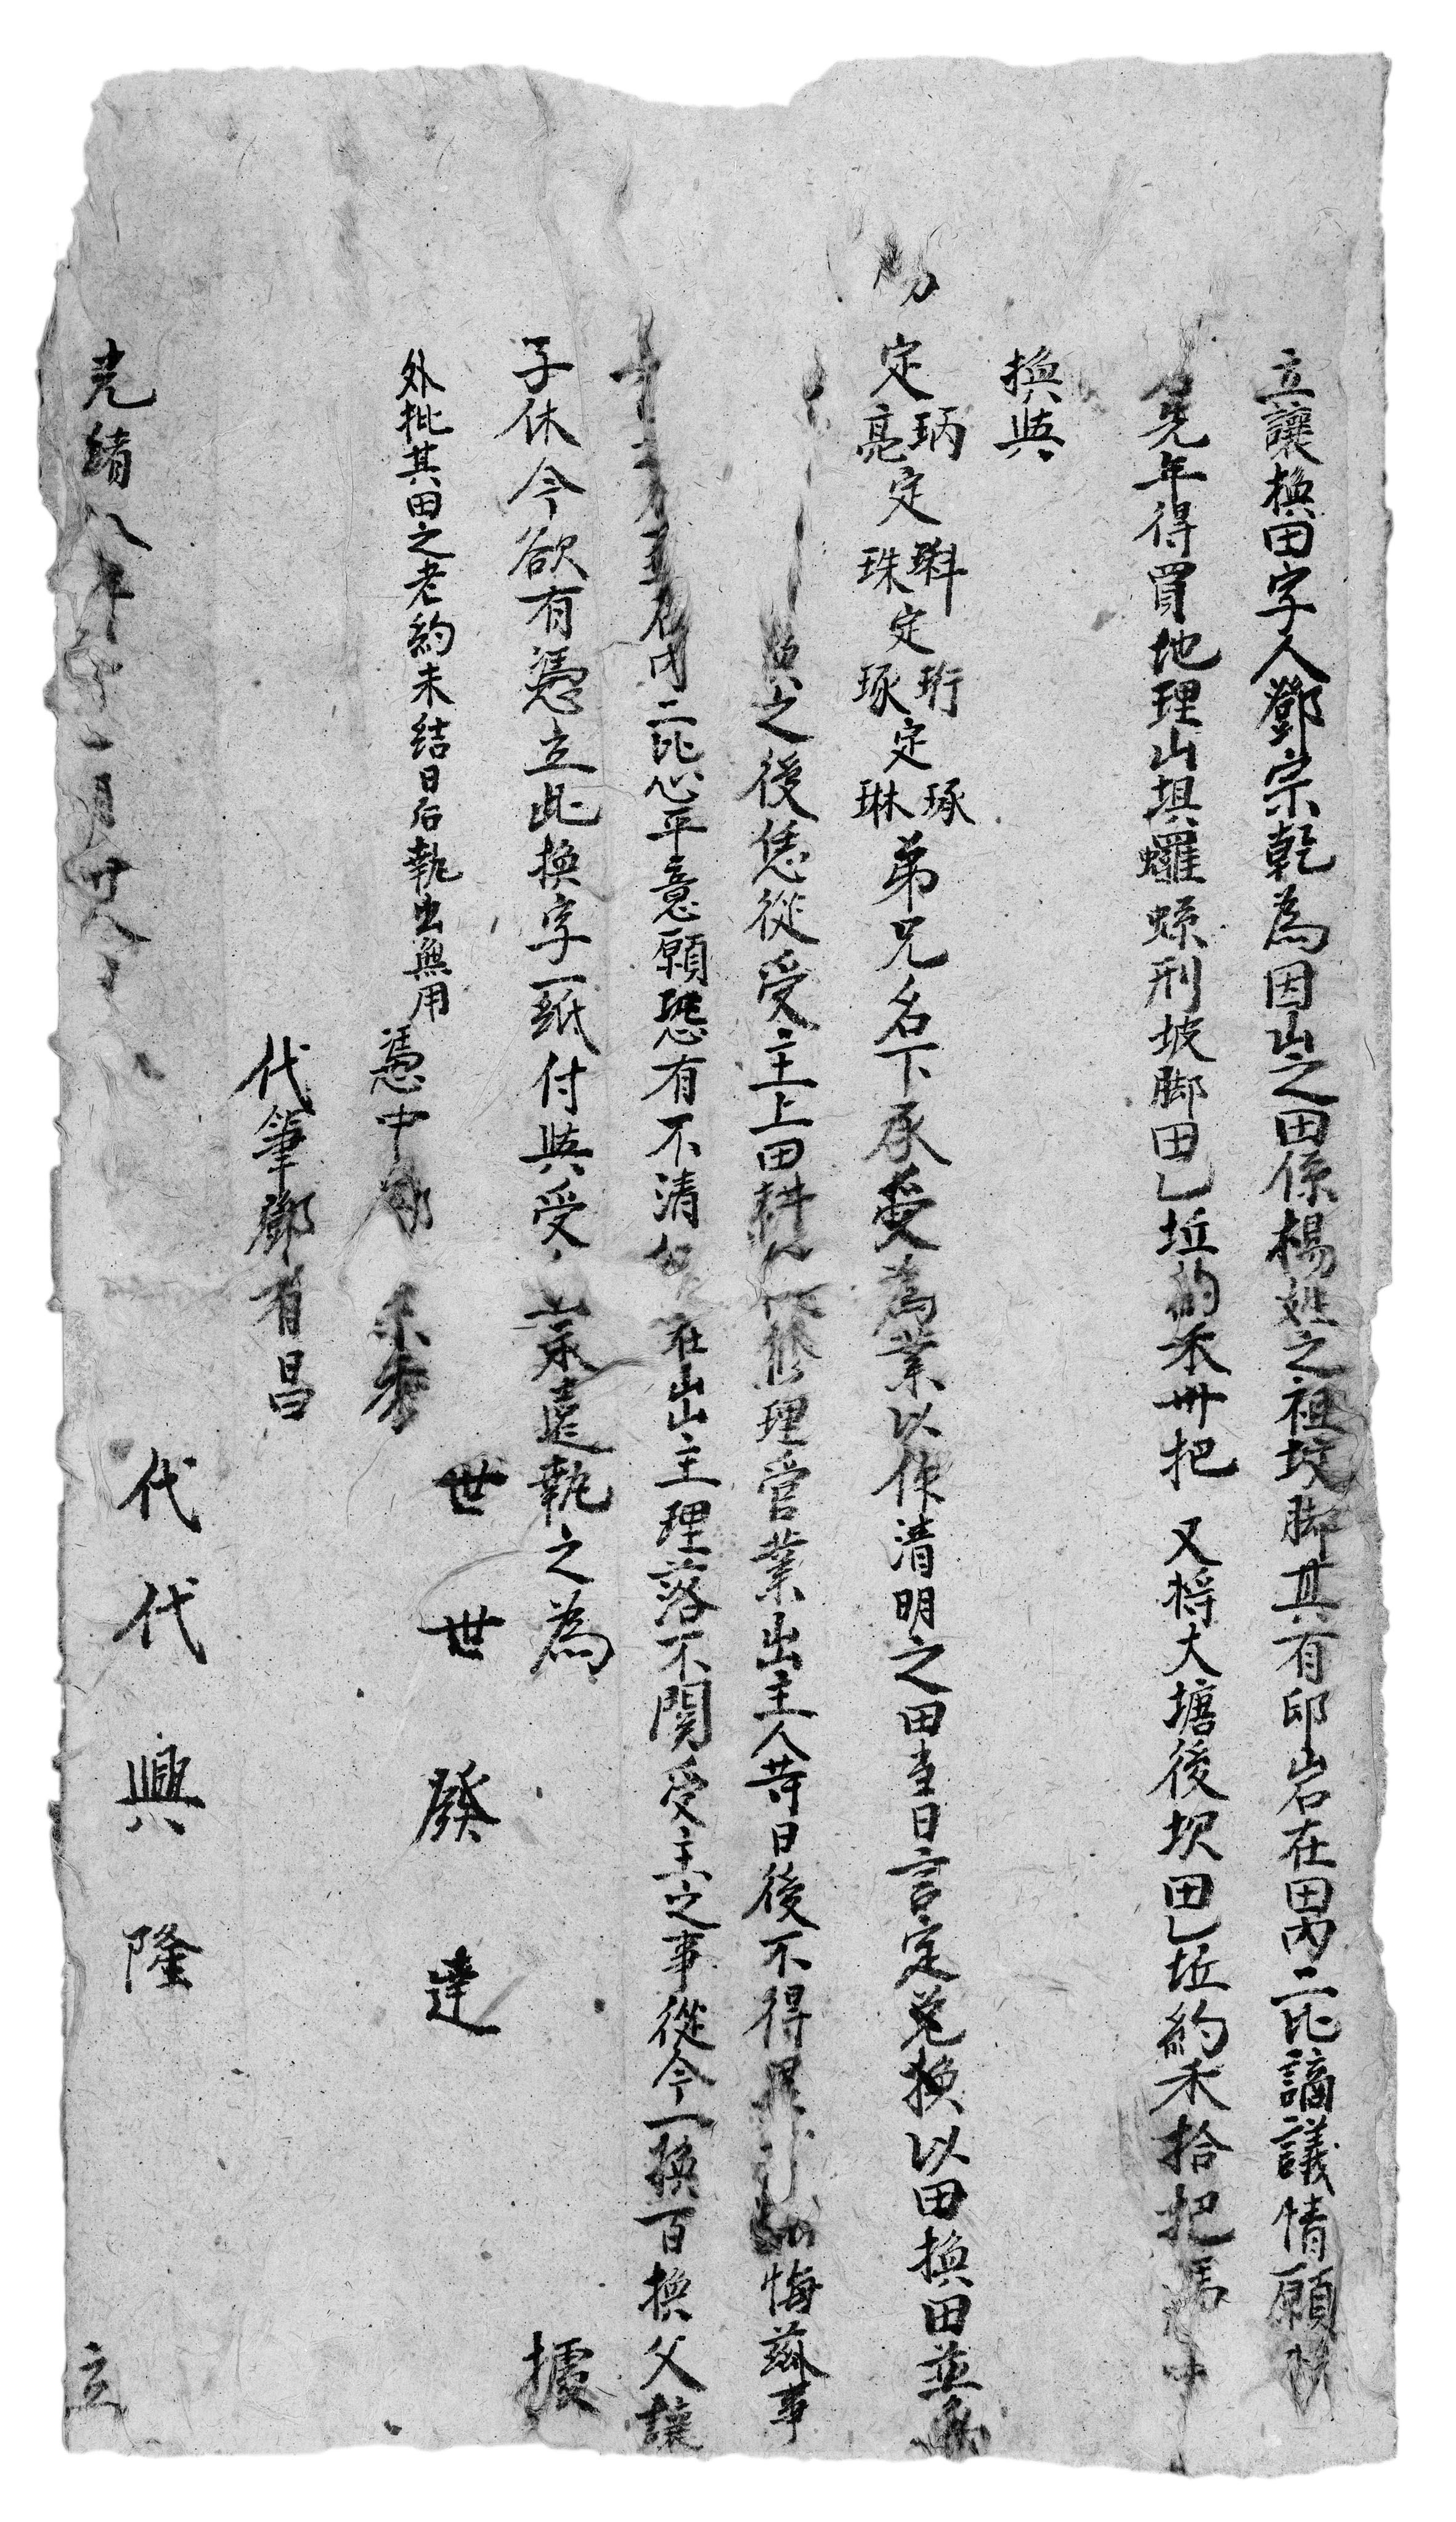 立讓換田字人鄧宗乾為因山之田係楊姓之祖坟脚其有邱岩在田內二比謪議情願將
先年得買地理山垻玀螈刑坡脚田乚坵約禾卅把 又將大塘後坝田乚坵約禾拾把憑中
換與
楊定炳亮定斟珠定珩琢定琢琳弟兄名下承受為業以作清明之田當日言定兌換以田換田並無
換之後恁從受主上田耕修理管業出主人等日後不得悔茲事
二比心平意願恐有不清在出主理落不関受主之事從今一換百換父讓
子休今欲有憑立此換字一紙付與受主永遠執之為 據
外批其田之老約未結日后執出無用 世世發達
憑中
代筆鄧有昌
代代興隆
光緒八年 月廿八日 立